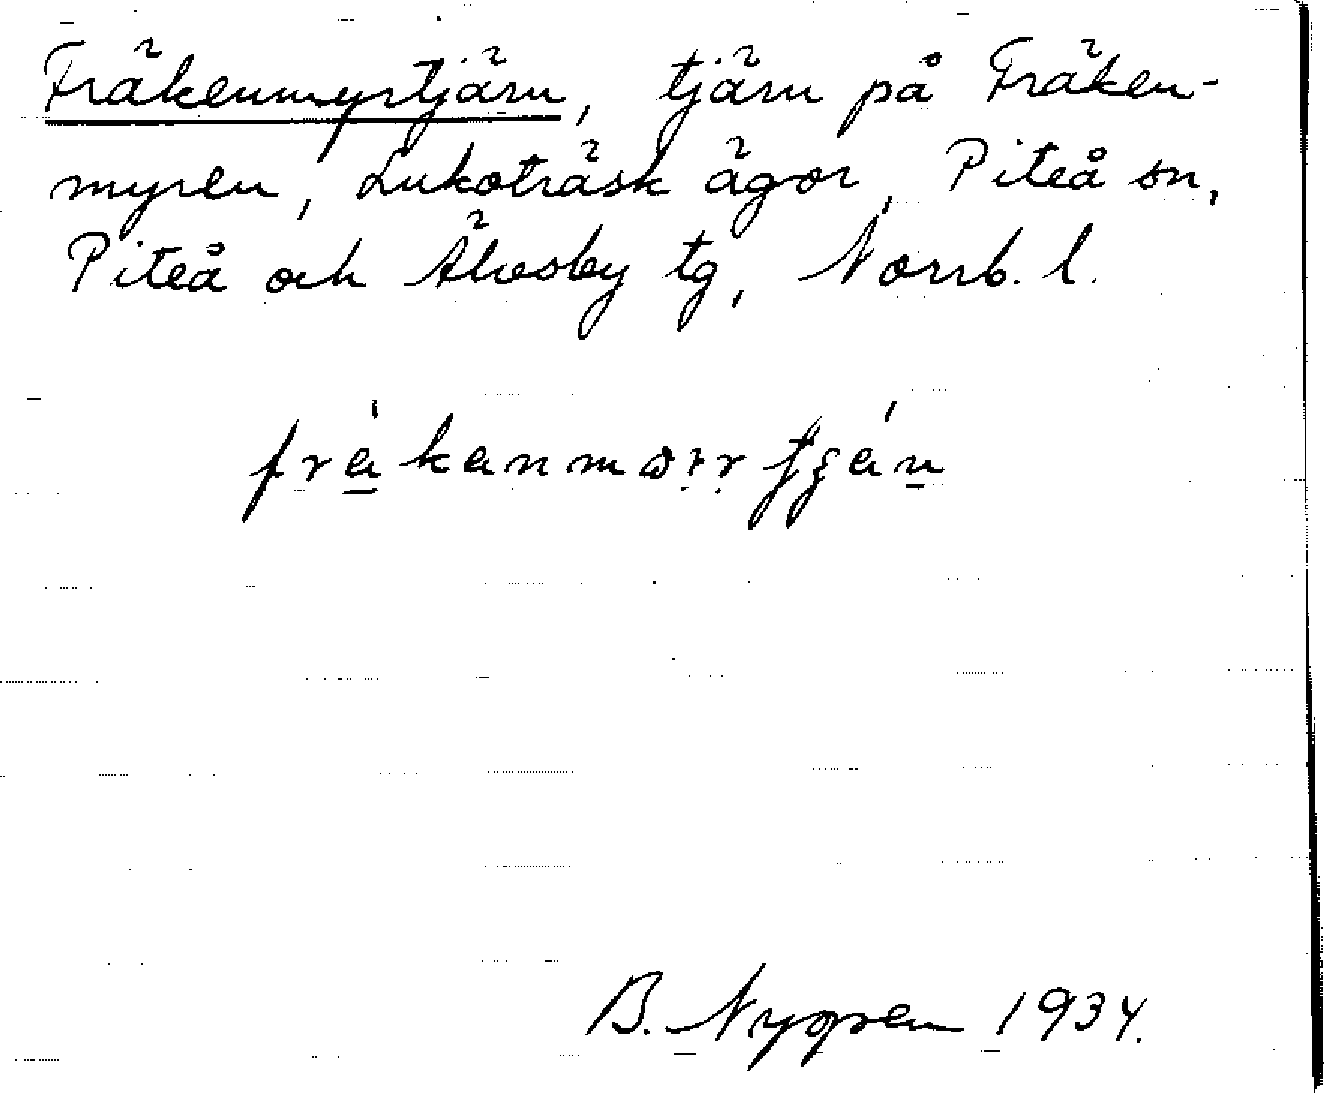 Fräkenmyrtjärn, tjärn på Fräken-
myren, Lukoträsk ägor, Piteå sn,
Piteå och Älvsby tg, Norrb. l.
B. Nygren 1934.